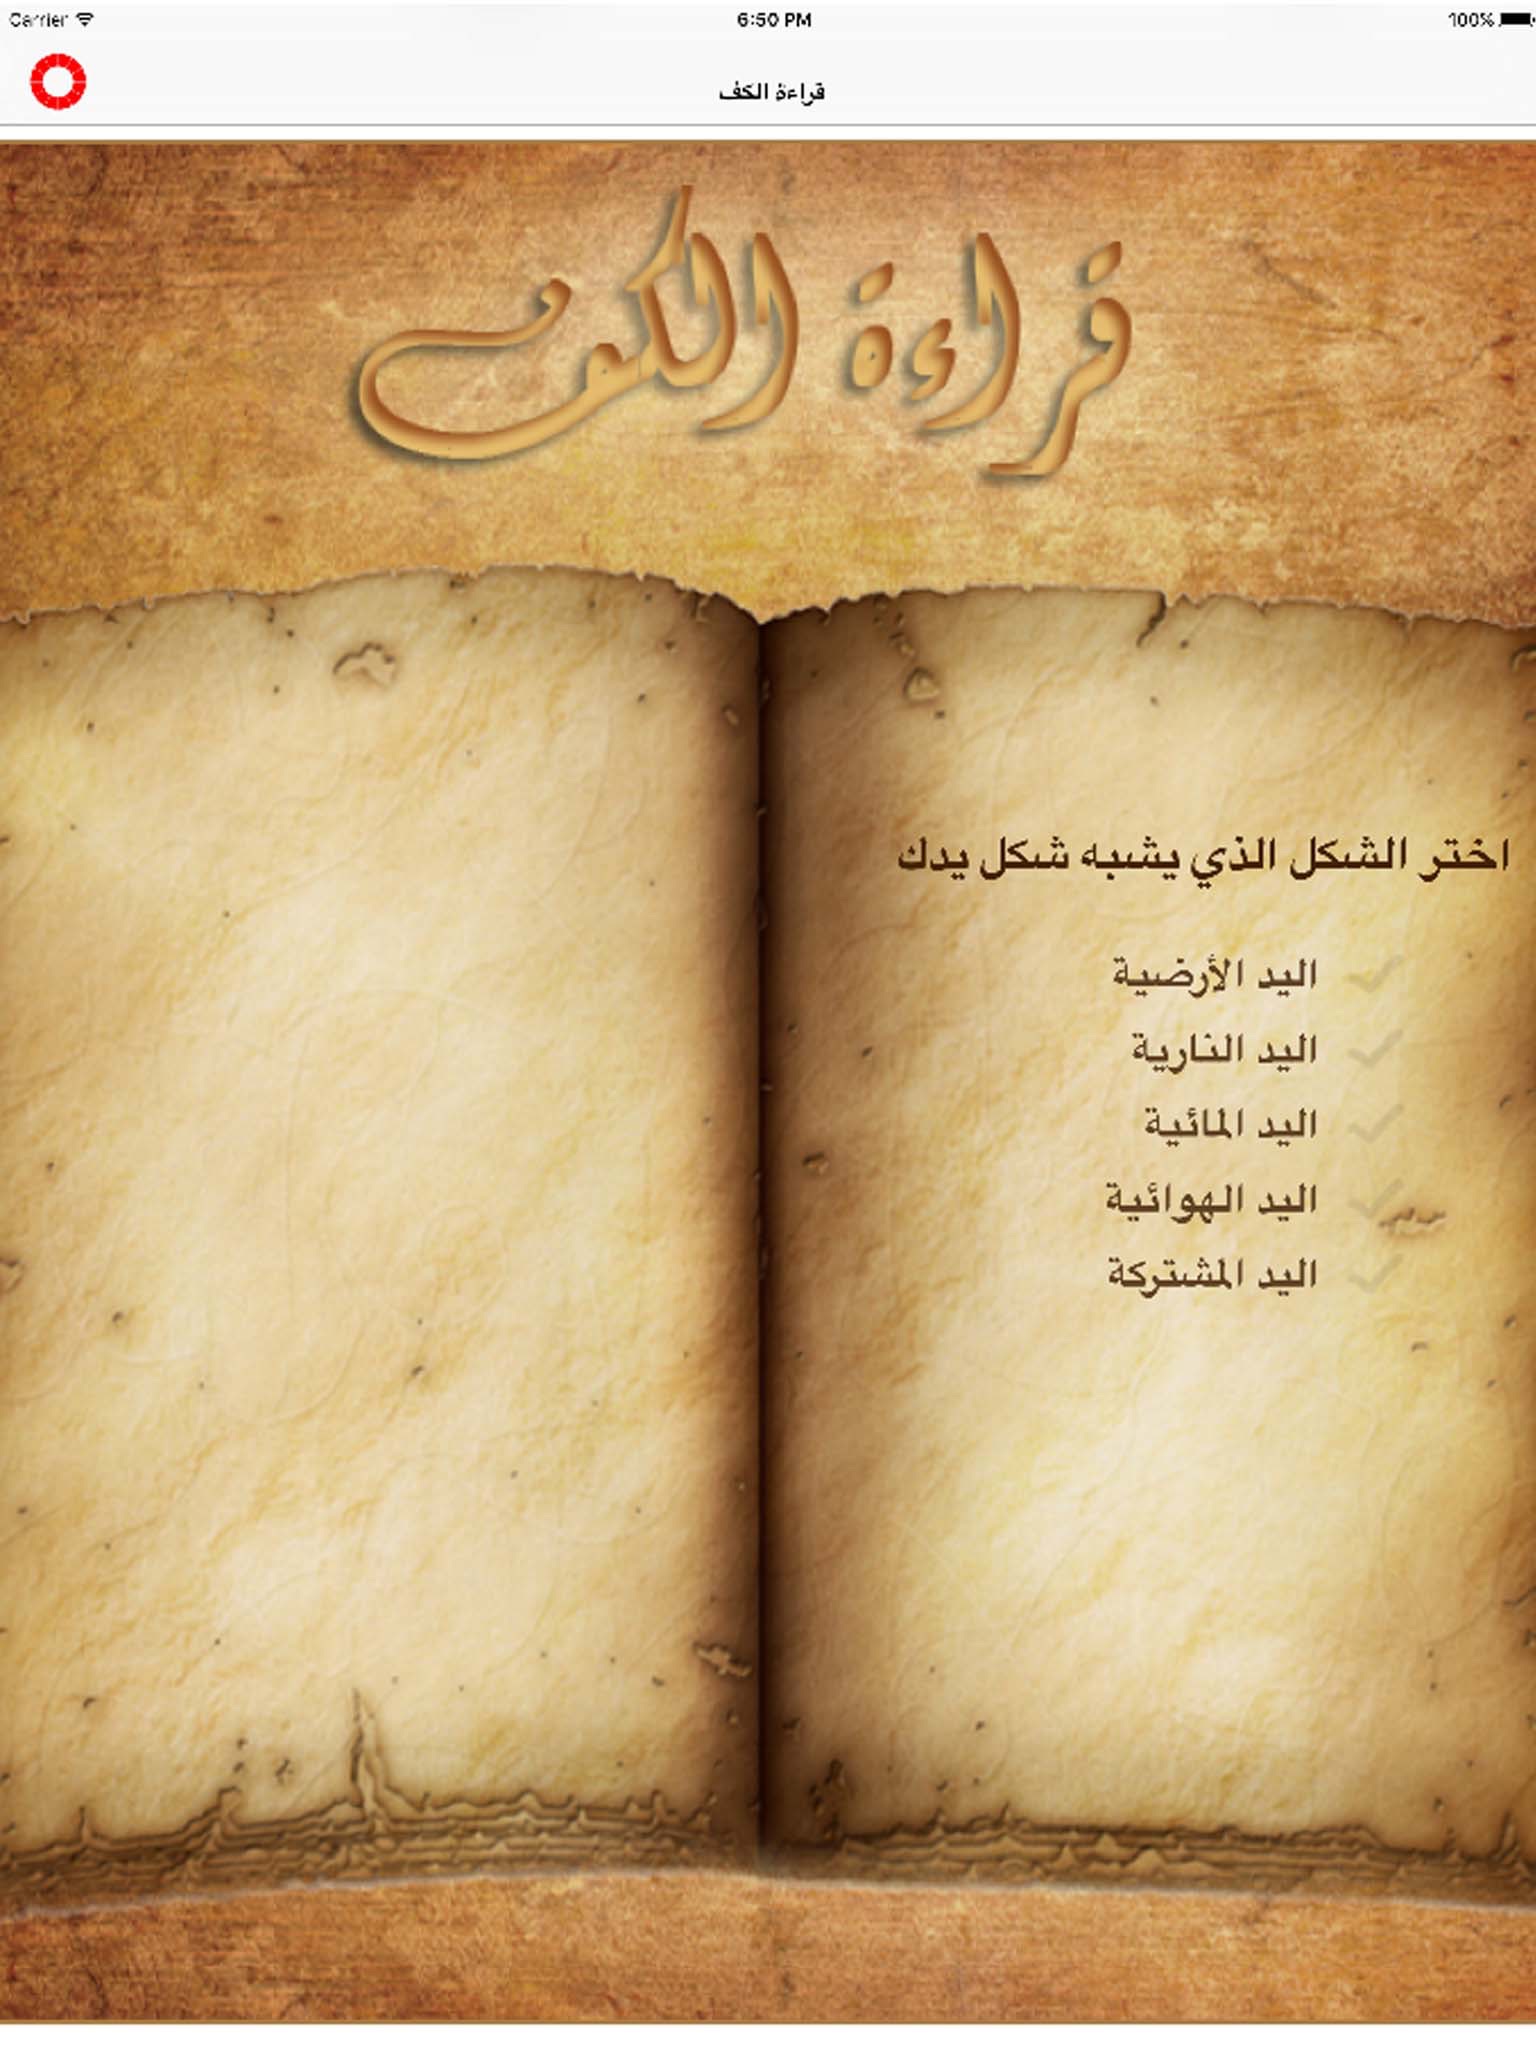 Carrier 6:50 PM 100%
قراءة الكف
قراءة الكف
اختر الشكل الذي يشبه شكل يدك
اليد الأرضية
اليد النارية
اليد المائية
اليد الهوائية
اليد المشتركة